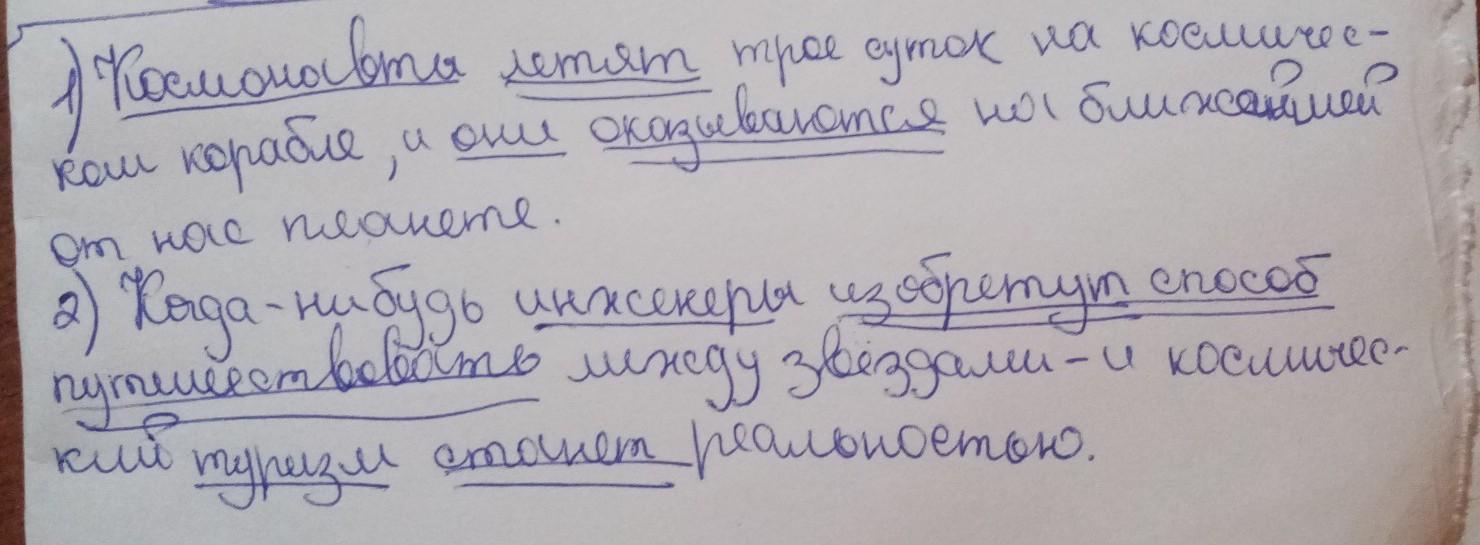 1) Космонавты летят трое суток на космичес-
ком корабле, и они оказываются на ближайшей
от нас планете.
2) Когда-нибудь инженеры изобретут способ
путешествовать между звёздами - и космичес-
кий туризм станет реальностью.